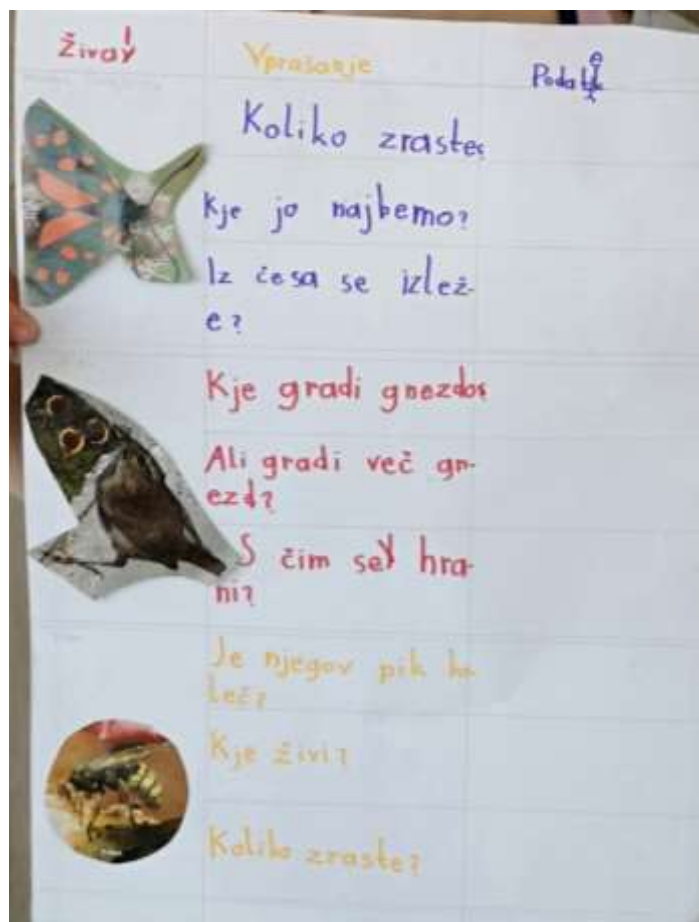 Živali
Vprašanje
Podatki
Koliko zraste?
Kje jo najdemo?
Iz česa se izlež-
e?
Kje gradi gnezdo?
Ali gradi več gn-
ezd?
S čim se hra-
ni?
Je njegov pik bo-
leč?
Kje živi?
Koliko zraste?